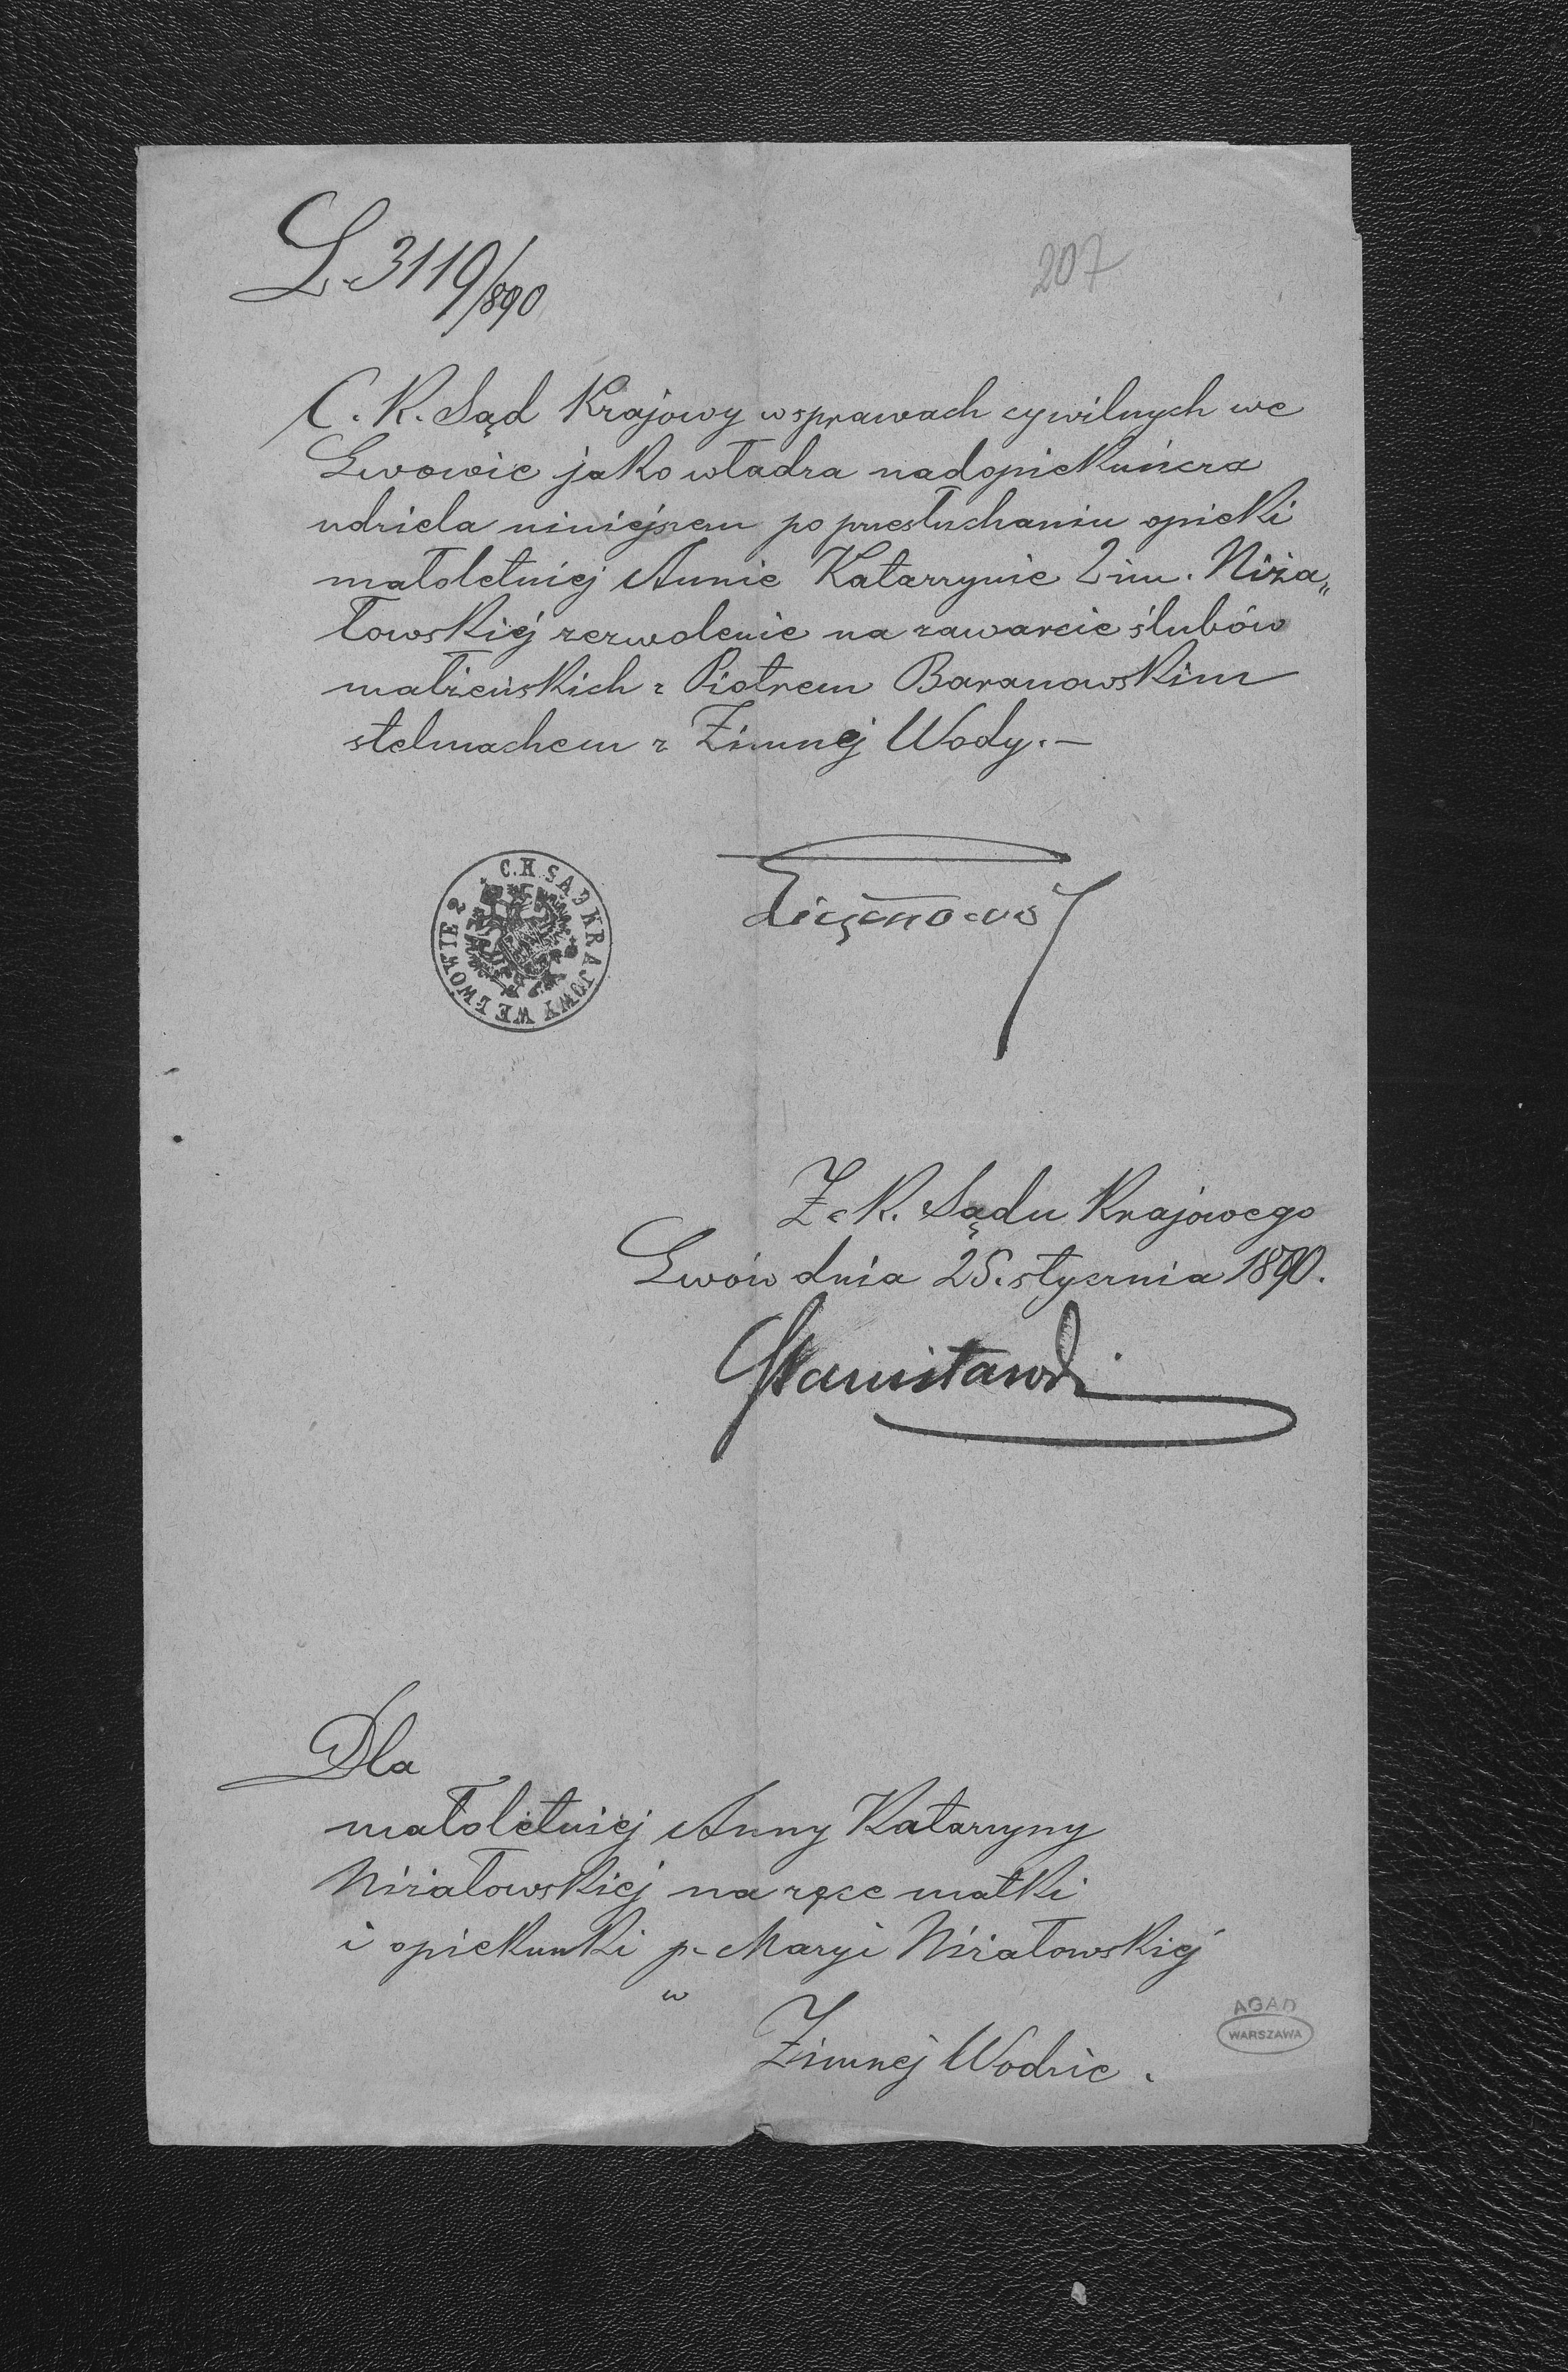 L. 3119/890
207
C. K. Sąd Krajowy w sprawach cywilnych we
Lwowie jako władza nadopiekuńcza
udziela niniejszem po przesłuchaniu opieki
małoletniej Annie Katarzynie 2 im. Niża„
łowskiej zezwolenie na zawarcie ślubów
małżeńskich z Piotrem Baranowskim
stelmachem z Zimnej Wody. —
C. K. SĄD KRAJOWY WE LWOWIE
Z c. K. Sądu Krajowego
Lwów dnia 25. stycznia 1890.
Dla
małoletniej Anny Katarzyny
Niżałowskiej na ręce matki
i opiekunki p. Maryi Niżałowskiej
w
Zimnej Wodzie.
AGAD
WARSZAWA